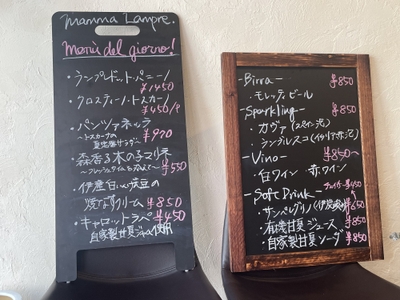 Mamma Lampre.
Menù del giorno!
・ランプレドットパニーノ
¥1450
・クロスティーノトスカーノ
¥450/P
・パンツァネッラ
〜トスカーナの
¥990
・森香る木の子マリネ
¥550
・伊産白いんげん豆の
焼なすクリーム ¥850
・キャロットラペ ¥450
自家製甘夏ジャム使用
-Birra- ¥850
・モレッティ ビール
-Sparkling- ¥850
・カヴァ(スペイン泡)
・ランブレスコ(イタリア赤泡)
-Vino- ¥850〜
・白ワイン 赤ワイン
-Soft Drink-
・サンペレグリノ(伊炭酸水) ¥650
・有機甘夏ジュース ¥850
・自家製甘夏ソーダ ¥850